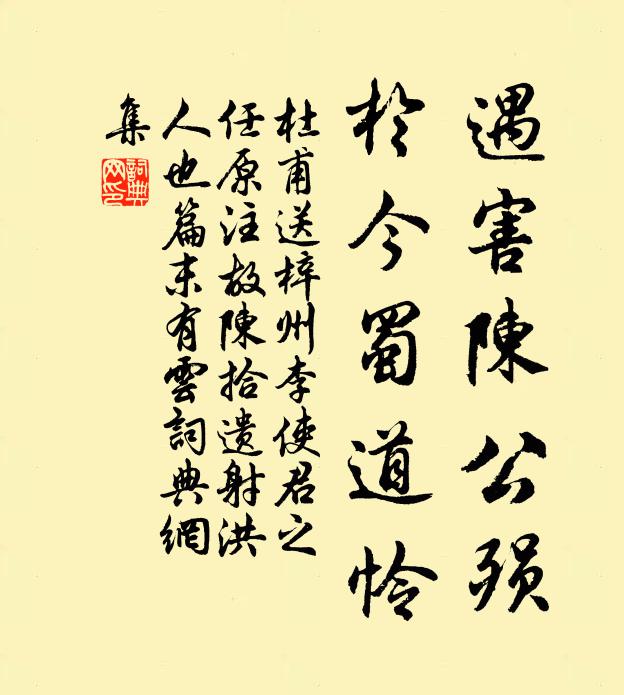 遇害陳公殞
於今蜀道怜
杜甫送梓州李使君之
任原注故陳拾遺射洪
人也篇末有雲詞典網
集
詞典網印